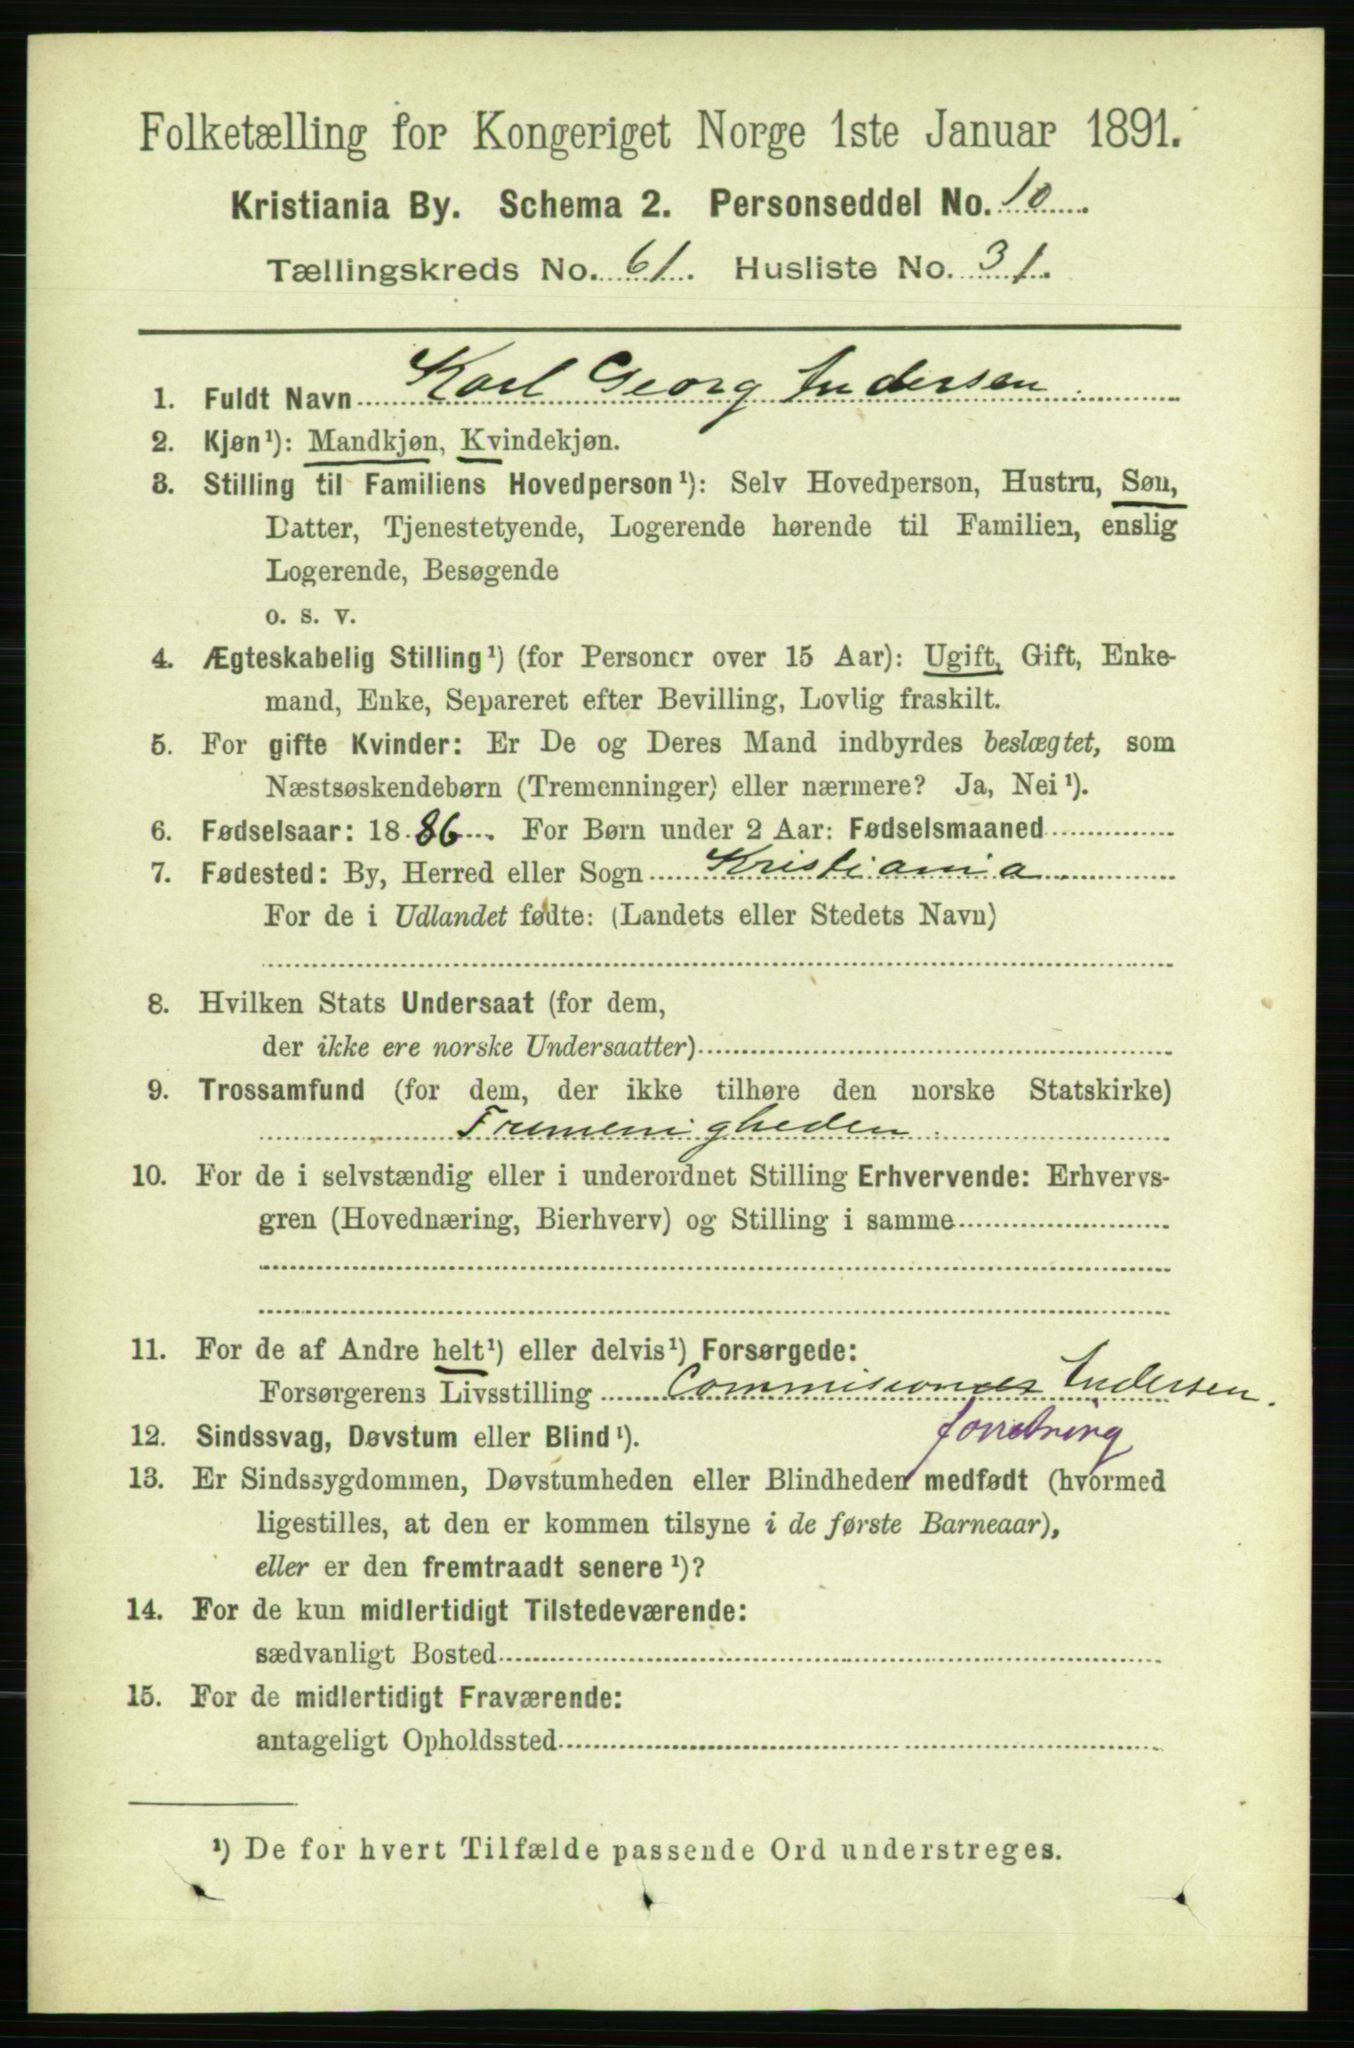 Folketælling for Kongeriget Norge 1ste Januar 1891.
Kristiania By. Schema 2. Personseddel No. 10
Tællingskreds No. 61. Husliste No. 31.
1. Fuldt Navn Karl Georg Andersen
2. Kjøn¹): Mandkjøn, Kvindekjøn.
3. Stilling til Familiens Hovedperson¹): Selv Hovedperson, Hustru, Søn,
Datter, Tjenestetyende, Logerende hørende til Familien, enslig
Logerende, Besøgende
o. s. v.
4. Ægteskabelig Stilling¹) (for Personer over 15 Aar): Ugift, Gift, Enke-
mand, Enke, Separeret efter Bevilling, Lovlig fraskilt.
5. For gifte Kvinder: Er De og Deres Mand indbyrdes beslægtet, som
Næstsøskendebørn (Tremenninger) eller nærmere? Ja, Nei¹).
6. Fødselsaar: 1886. For Børn under 2 Aar: Fødselsmaaned
7. Fødested: By, Herred eller Sogn Kristiania
For de i Udlandet fødte: (Landets eller Stedets Navn)
8. Hvilken Stats Undersaat (for dem,
der ikke ere norske Undersaatter)
9. Trossamfund (for dem, der ikke tilhøre den norske Statskirke)
Frimenigheden
10. For de i selvstændig eller i underordnet Stilling Erhvervende: Erhvervs-
gren (Hovednæring, Bierhverv) og Stilling i samme
11. For de af Andre helt¹) eller delvis¹) Forsørgede:
Forsørgerens Livsstilling Commisioner Andersen.
forretning
12. Sindssvag, Døvstum eller Blind¹).
13. Er Sindssygdommen, Døvstumheden eller Blindheden medfødt (hvormed
ligestilles, at den er kommen tilsyne i de første Barneaar),
eller er den fremtraadt senere¹)?
14. For de kun midlertidigt Tilstedeværende:
sædvanligt Bosted
15. For de midlertidigt Fraværende:
antageligt Opholdssted
¹) De for hvert Tilfælde passende Ord understreges.